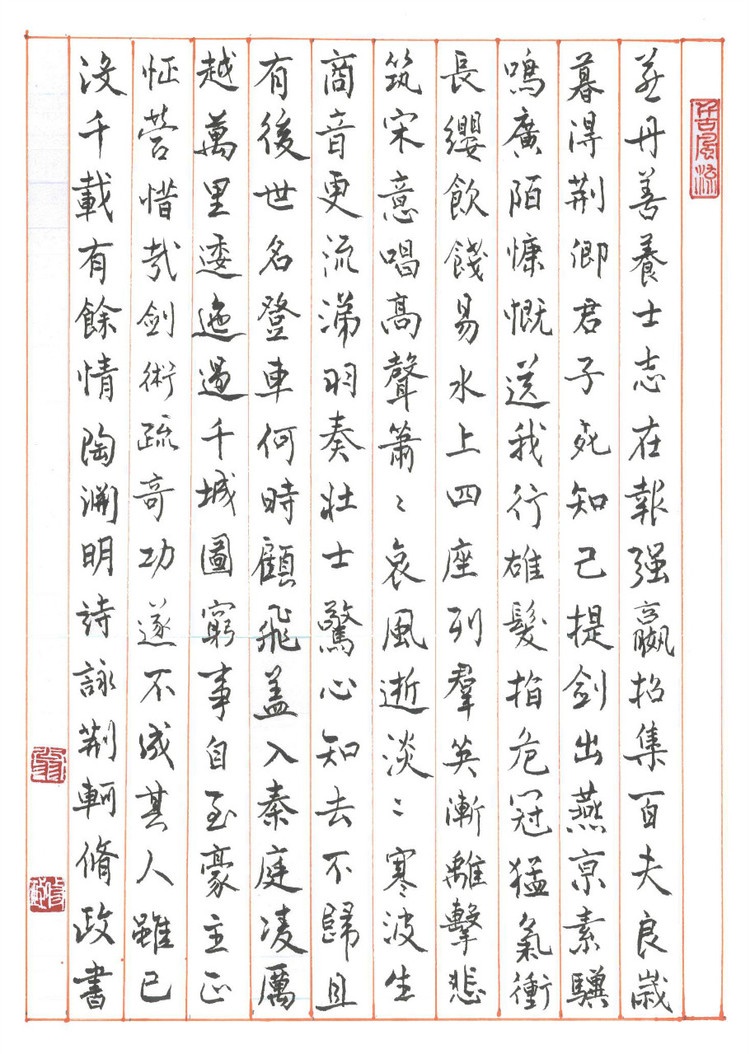 燕丹善養士志在報强嬴招集百夫良歲
暮得荆卿君子死知己提劍出燕京素驥
鳴廣陌慷慨送我行雄髮指危冠猛氣衝
長纓飲餞易水上四座列羣英漸離擊悲
筑宋意唱高聲蕭〻哀風逝淡〻寒波生
商音更流涕羽奏壯士驚心知去不歸且
有後世名登車何時顧飛蓋入秦庭凌厲
越萬里逶迤過千城圖窮事自至豪主正
怔營惜哉劍術疏奇功遂不成其人雖已
沒千載有餘情陶淵明詩詠荆軻脩政書